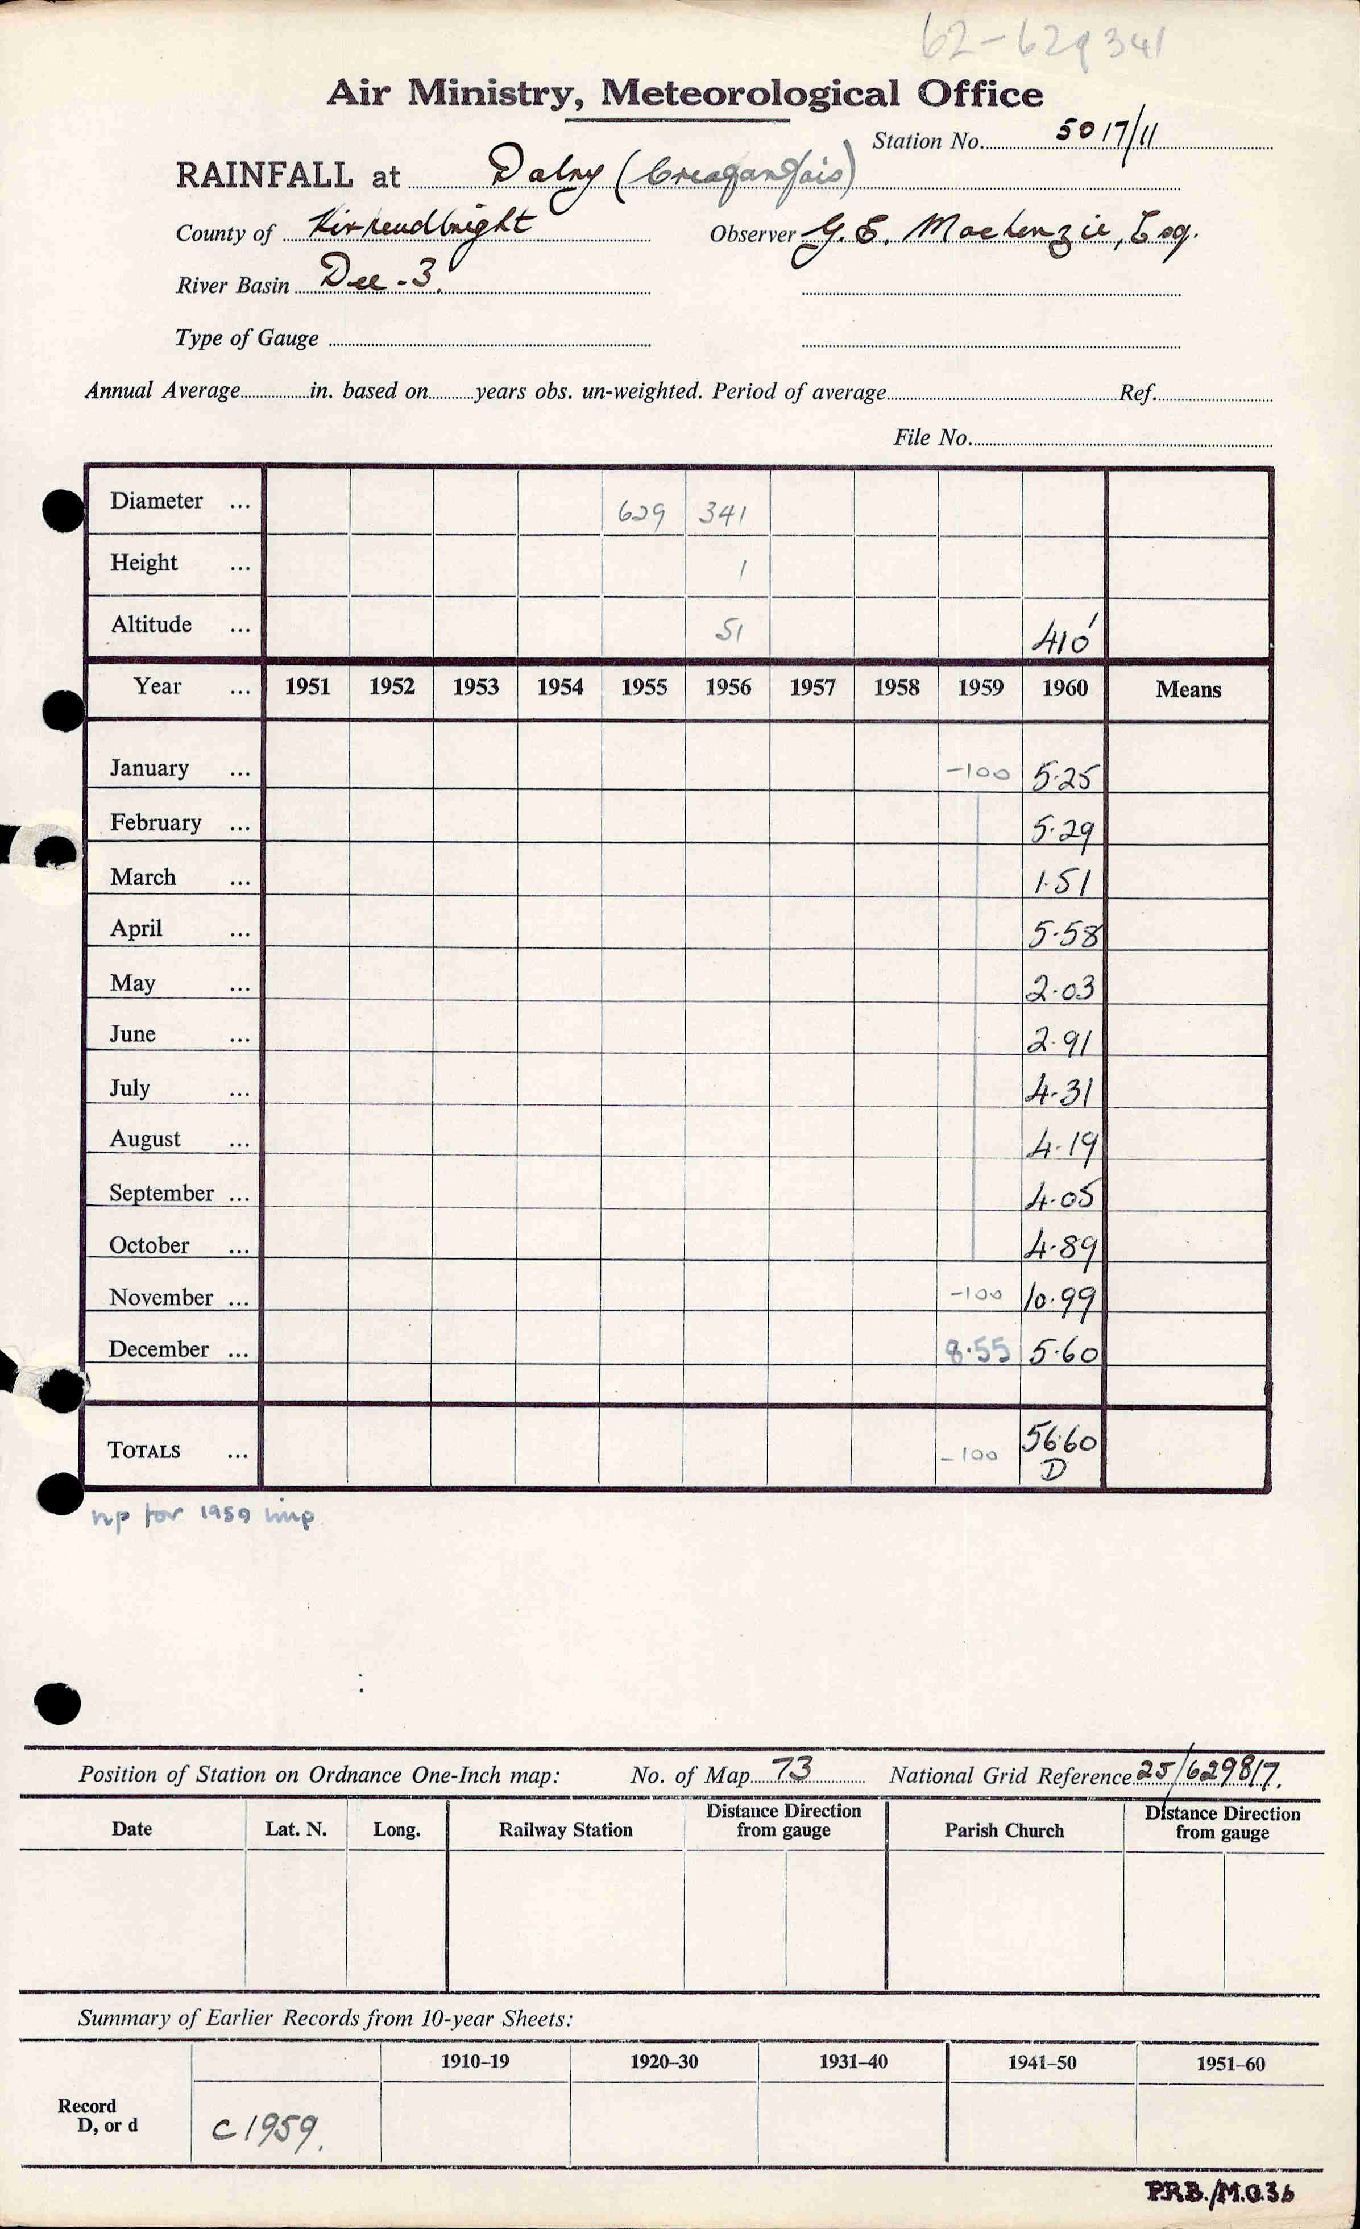 62-629341
Air Ministry, Meteorological Office
Station No. 5017/11
RAINFALL at Dalry (Creaganglais)
County of Kirkcudbright Observer G. E. Mackenzie, Esq.
River Basin Dee - 3.
Type of Gauge
Annual Average in. based on years obs. un-weighted. Period of average Ref.
File No.
Diameter ... 629 341
Height ... 1
Altitude ... 51 410'
Year ... 1951 1952 1953 1954 1955 1956 1957 1958 1959 1960 Means
January ... -100 5.25
February ... 5.29
March ... 1.51
April ... 5.58
May ... 2.03
June ... 2.91
July ... 4.31
August ... 4.19
September ... 4.05
October ... 4.89
November ... -100 10.99
December ... 8.55 5.60
TOTALS ... -100 56.60
D
np for 1959 imp
Position of Station on Ordnance One-Inch map: No. of Map 73 National Grid Reference 25/629817.
Date Lat. N. Long. Railway Station Distance Direction from gauge Parish Church Distance Direction from gauge
Summary of Earlier Records from 10-year Sheets:
1910–19 1920–30 1931–40 1941–50 1951–60
Record
D, or d c 1959.
P.R.B./M.O.36